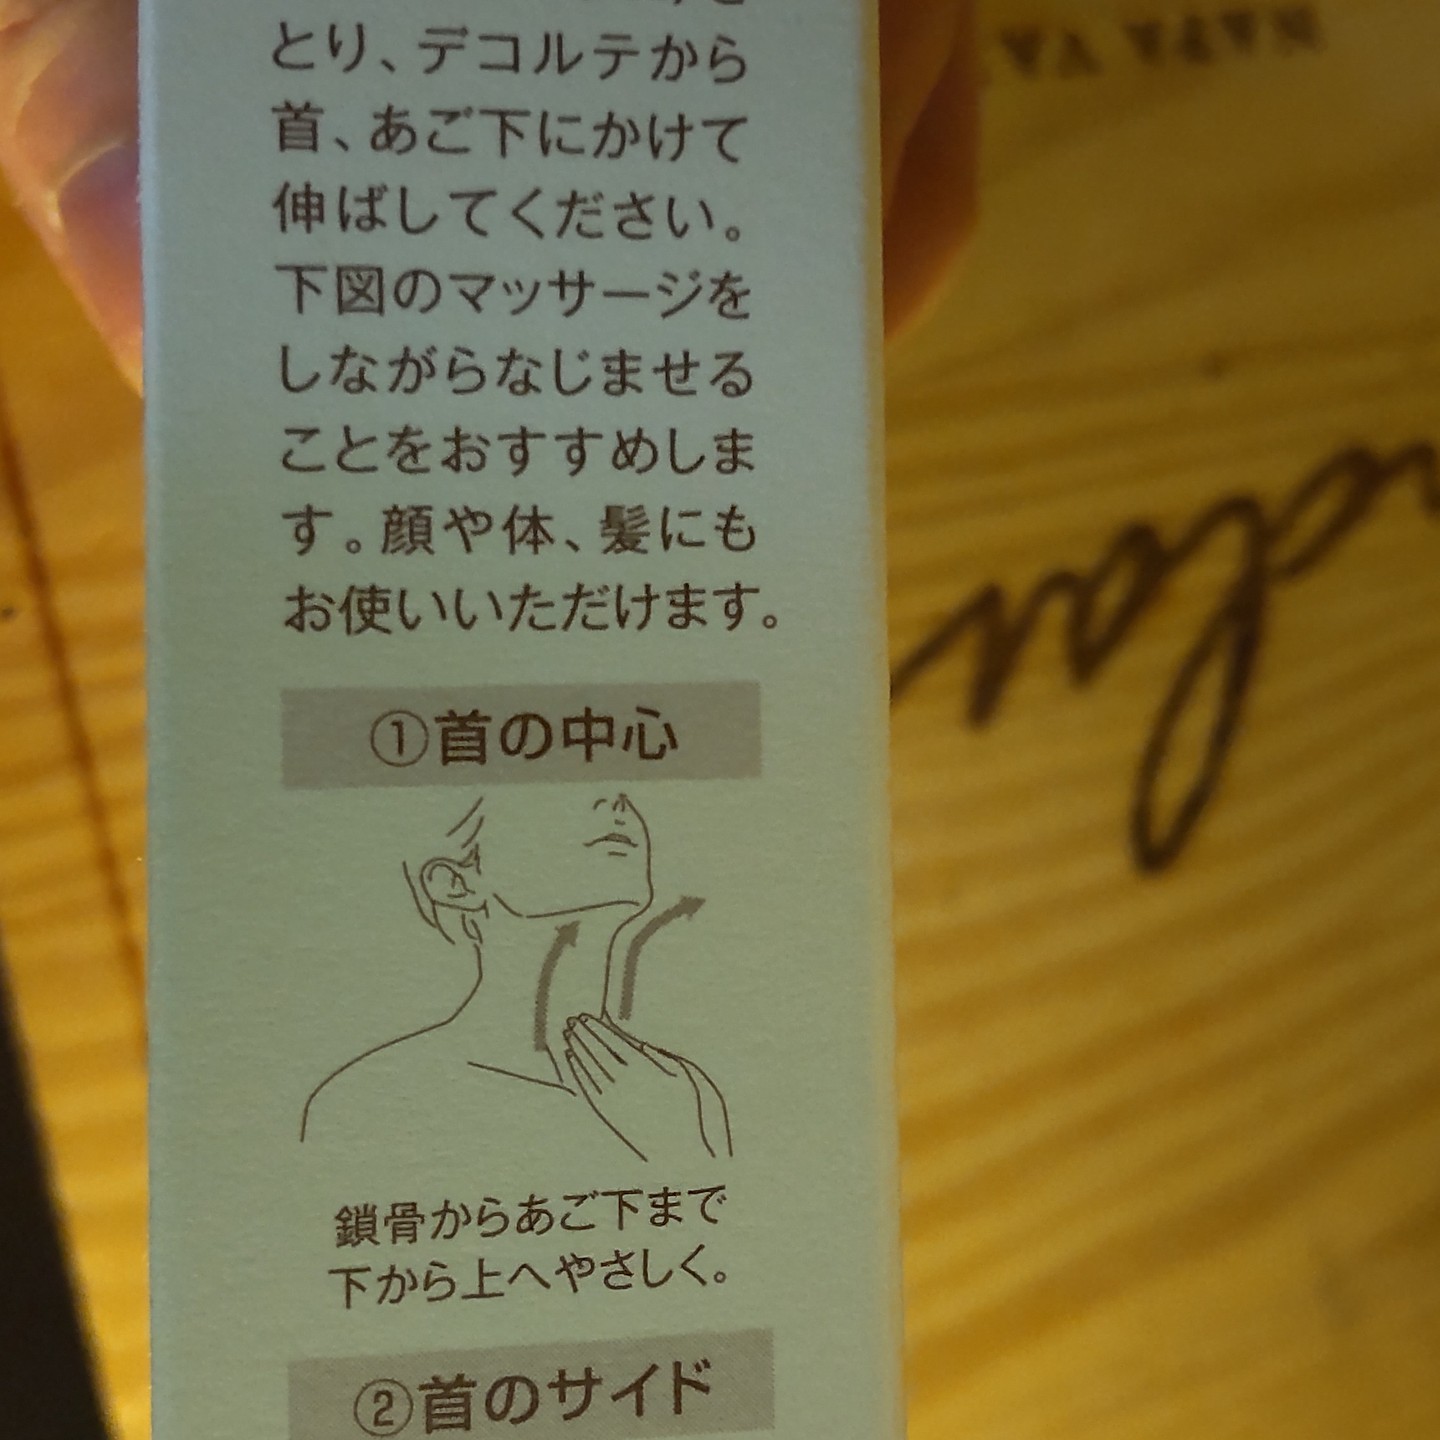 とり、デコルテから
首、あご下にかけて
伸ばしてください。
下図のマッサージを
しながらなじませる
ことをおすすめしま
す。顔や体、髪にも
お使いいただけます。
①首の中心
鎖骨からあご下まで
下から上へやさしく。
②首のサイド